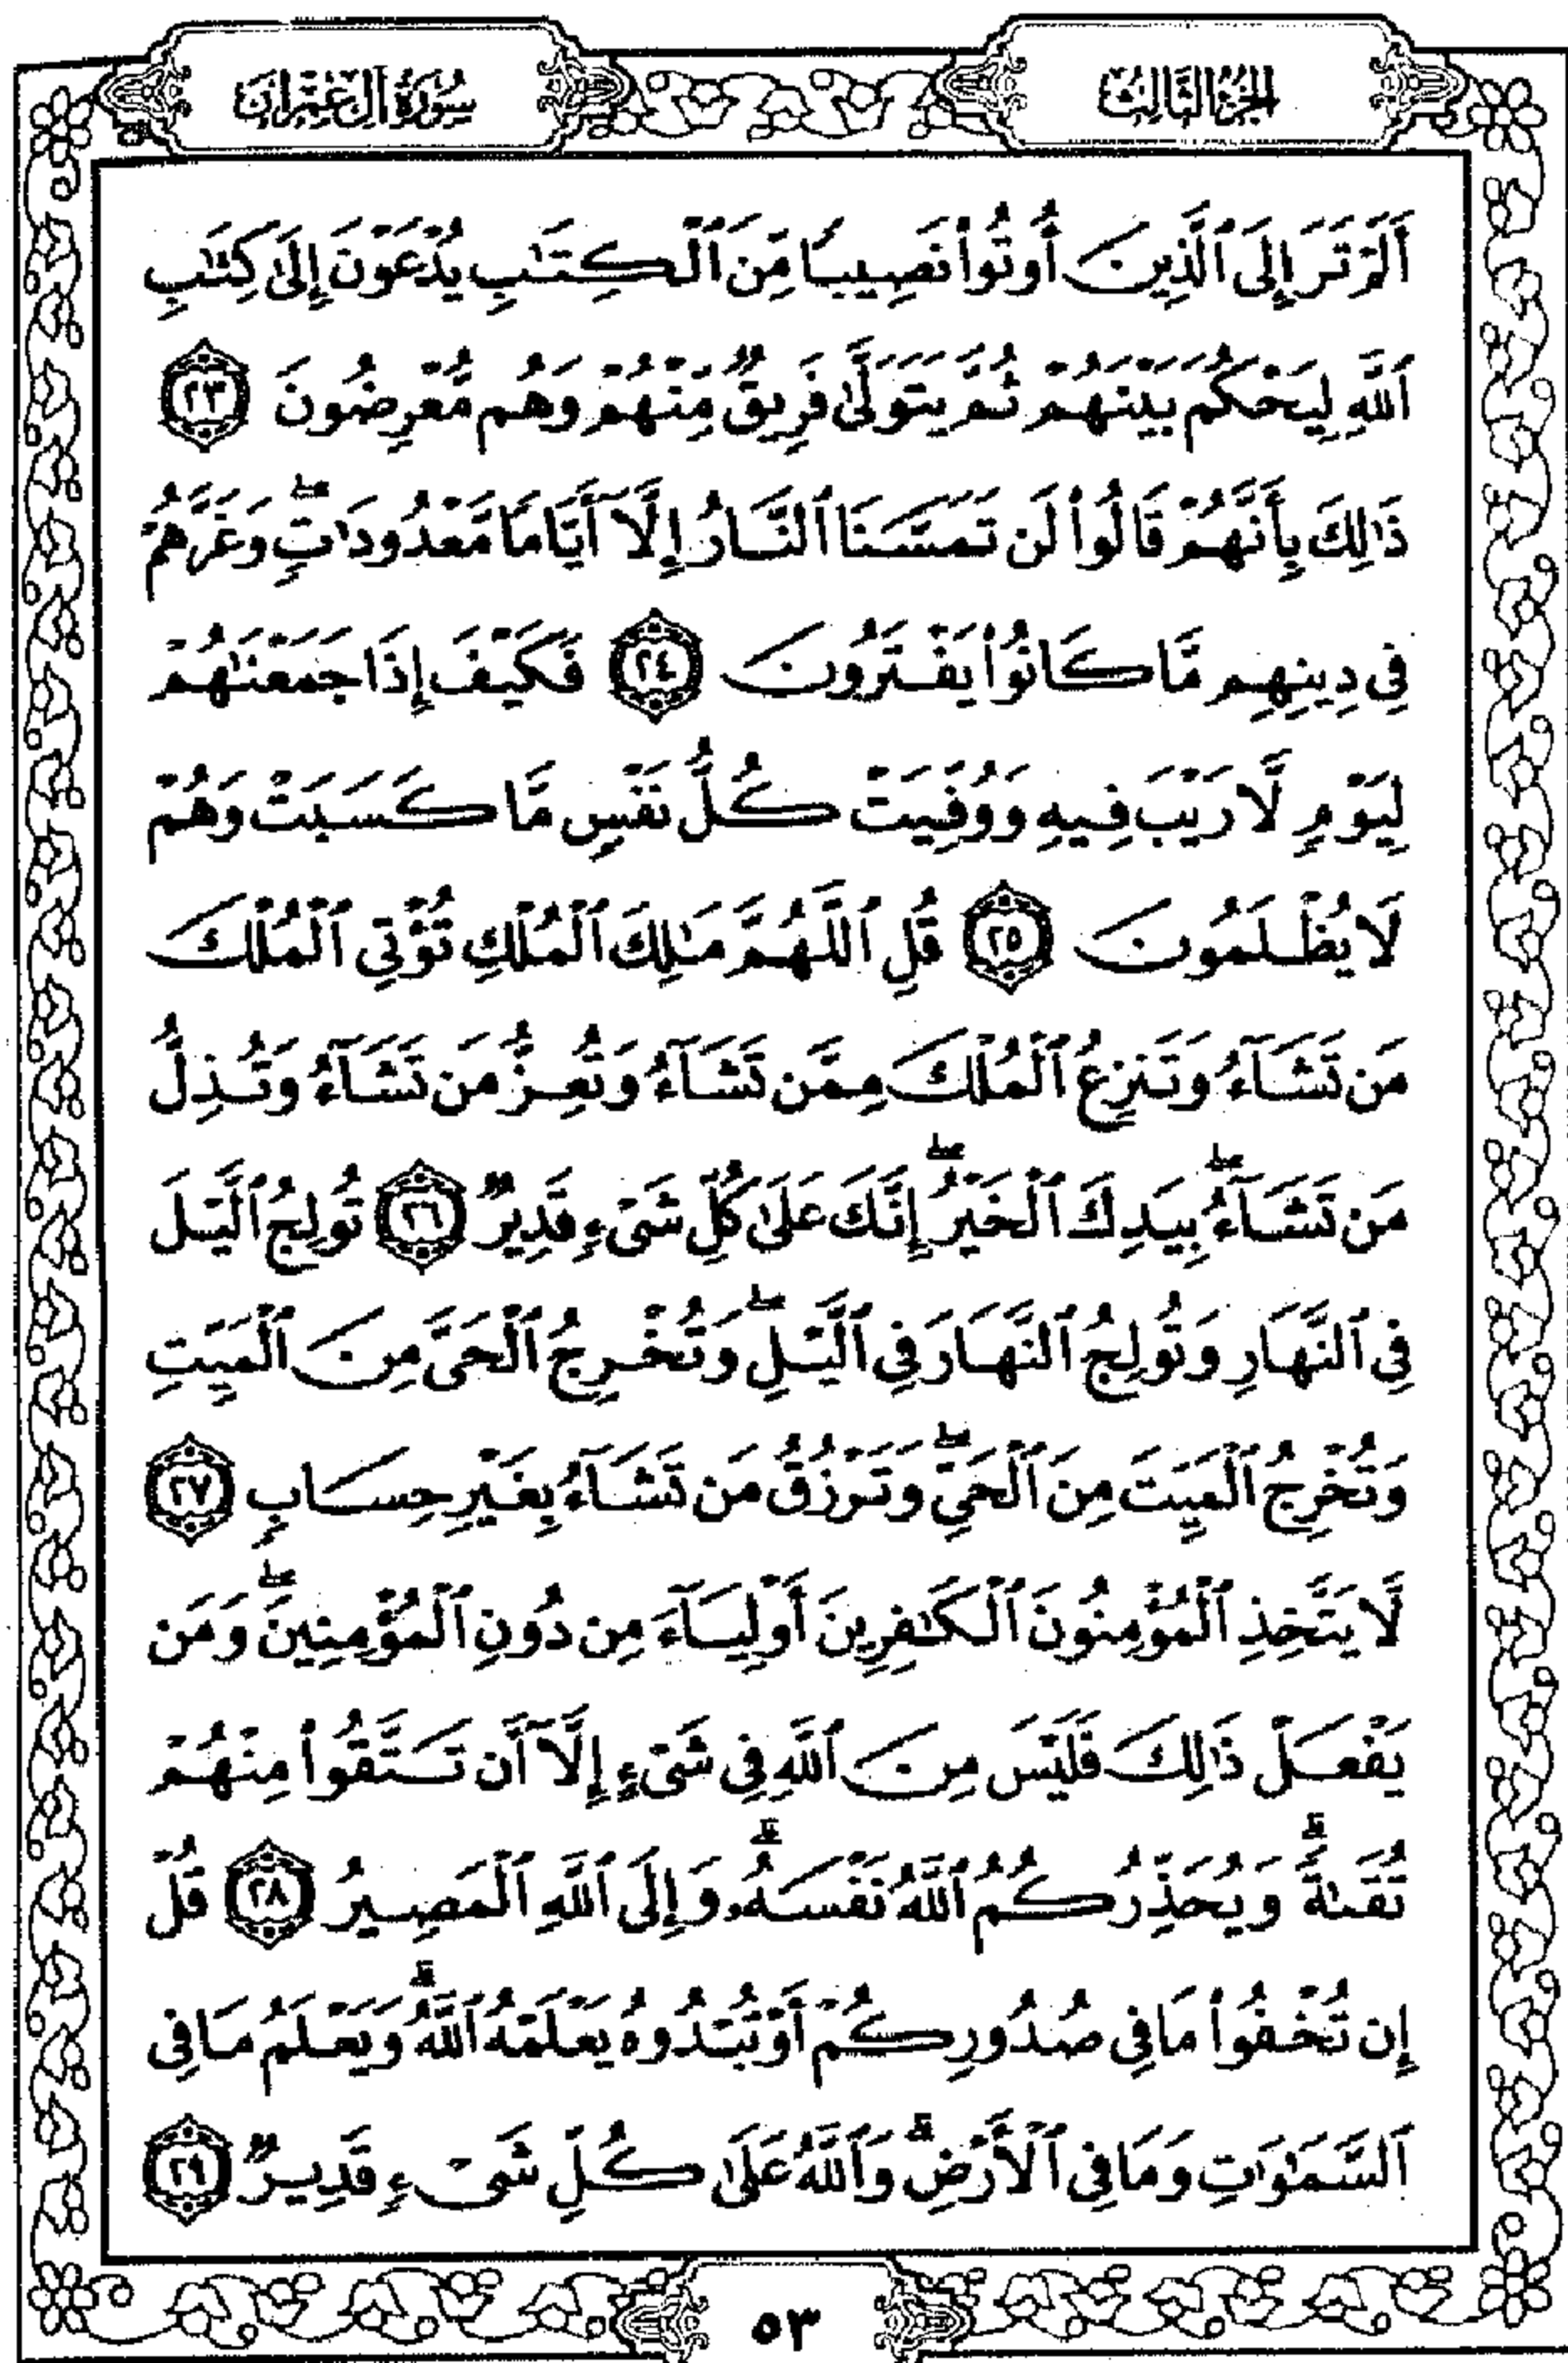 الجزء الثالث
سورة آل عمران
أَلَمْ تَرَ إِلَى ٱلَّذِينَ أُوتُوا۟ نَصِيبًا مِّنَ ٱلْكِتَٰبِ يُدْعَوْنَ إِلَىٰ كِتَٰبِ
ٱللَّهِ لِيَحْكُمَ بَيْنَهُمْ ثُمَّ يَتَوَلَّىٰ فَرِيقٌ مِّنْهُمْ وَهُم مُّعْرِضُونَ ٢٣
ذَٰلِكَ بِأَنَّهُمْ قَالُوا۟ لَن تَمَسَّنَا ٱلنَّارُ إِلَّآ أَيَّامًا مَّعْدُودَٰتٍ ۖ وَغَرَّهُمْ
فِى دِينِهِم مَّا كَانُوا۟ يَفْتَرُونَ ٢٤ فَكَيْفَ إِذَا جَمَعْنَٰهُمْ
لِيَوْمٍ لَّا رَيْبَ فِيهِ وَوُفِّيَتْ كُلُّ نَفْسٍ مَّا كَسَبَتْ وَهُمْ
لَا يُظْلَمُونَ ٢٥ قُلِ ٱللَّهُمَّ مَٰلِكَ ٱلْمُلْكِ تُؤْتِى ٱلْمُلْكَ
مَن تَشَآءُ وَتَنزِعُ ٱلْمُلْكَ مِمَّن تَشَآءُ وَتُعِزُّ مَن تَشَآءُ وَتُذِلُّ
مَن تَشَآءُ ۖ بِيَدِكَ ٱلْخَيْرُ ۖ إِنَّكَ عَلَىٰ كُلِّ شَىْءٍ قَدِيرٌ ٢٦ تُولِجُ ٱلَّيْلَ
فِى ٱلنَّهَارِ وَتُولِجُ ٱلنَّهَارَ فِى ٱلَّيْلِ ۖ وَتُخْرِجُ ٱلْحَىَّ مِنَ ٱلْمَيِّتِ
وَتُخْرِجُ ٱلْمَيِّتَ مِنَ ٱلْحَىِّ ۖ وَتَرْزُقُ مَن تَشَآءُ بِغَيْرِ حِسَابٍ ٢٧
لَّا يَتَّخِذِ ٱلْمُؤْمِنُونَ ٱلْكَٰفِرِينَ أَوْلِيَآءَ مِن دُونِ ٱلْمُؤْمِنِينَ ۖ وَمَن
يَفْعَلْ ذَٰلِكَ فَلَيْسَ مِنَ ٱللَّهِ فِى شَىْءٍ إِلَّآ أَن تَتَّقُوا۟ مِنْهُمْ
تُقَىٰةً ۗ وَيُحَذِّرُكُمُ ٱللَّهُ نَفْسَهُۥ ۗ وَإِلَى ٱللَّهِ ٱلْمَصِيرُ ٢٨ قُلْ
إِن تُخْفُوا۟ مَا فِى صُدُورِكُمْ أَوْ تُبْدُوهُ يَعْلَمْهُ ٱللَّهُ ۗ وَيَعْلَمُ مَا فِى
ٱلسَّمَٰوَٰتِ وَمَا فِى ٱلْأَرْضِ ۗ وَٱللَّهُ عَلَىٰ كُلِّ شَىْءٍ قَدِيرٌ ٢٩
٥٣